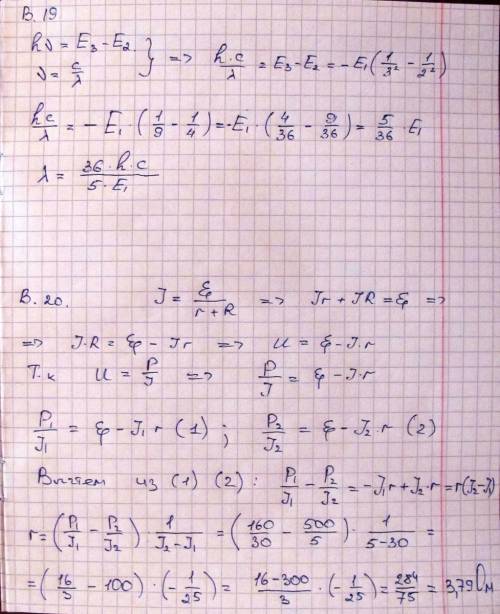 В. 19
hν = E₃ - E₂
ν = c/λ } => h·c/λ = E₃ - E₂ = - E₁ (1/3² - 1/2²)
hc/λ = - E₁ · (1/9 - 1/4) = -E₁ · (4/36 - 9/36) = 5/36 · E₁
λ = 36·h·c / 5·E₁
В. 20. J = ℰ/(r + R) => Jr + JR = ℰ =>
=> J·R = ℰ - Jr => u = ℰ - J·r
Т.к u = P/J => P/J = ℰ - J·r
P₁/J₁ = ℰ - J₁·r (1) ; P₂/J₂ = ℰ - J₂·r (2)
Вычтем из (1) (2) : P₁/J₁ - P₂/J₂ = -J₁r + J₂·r = r(J₂-J₁)
r = (P₁/J₁ - P₂/J₂) · 1/(J₂ - J₁) = (160/30 - 500/5) · 1/(5-30) =
= (16/3 - 100) · (-1/25) = (16-300)/3 · (-1/25) = 284/75 = 3,79 Ом